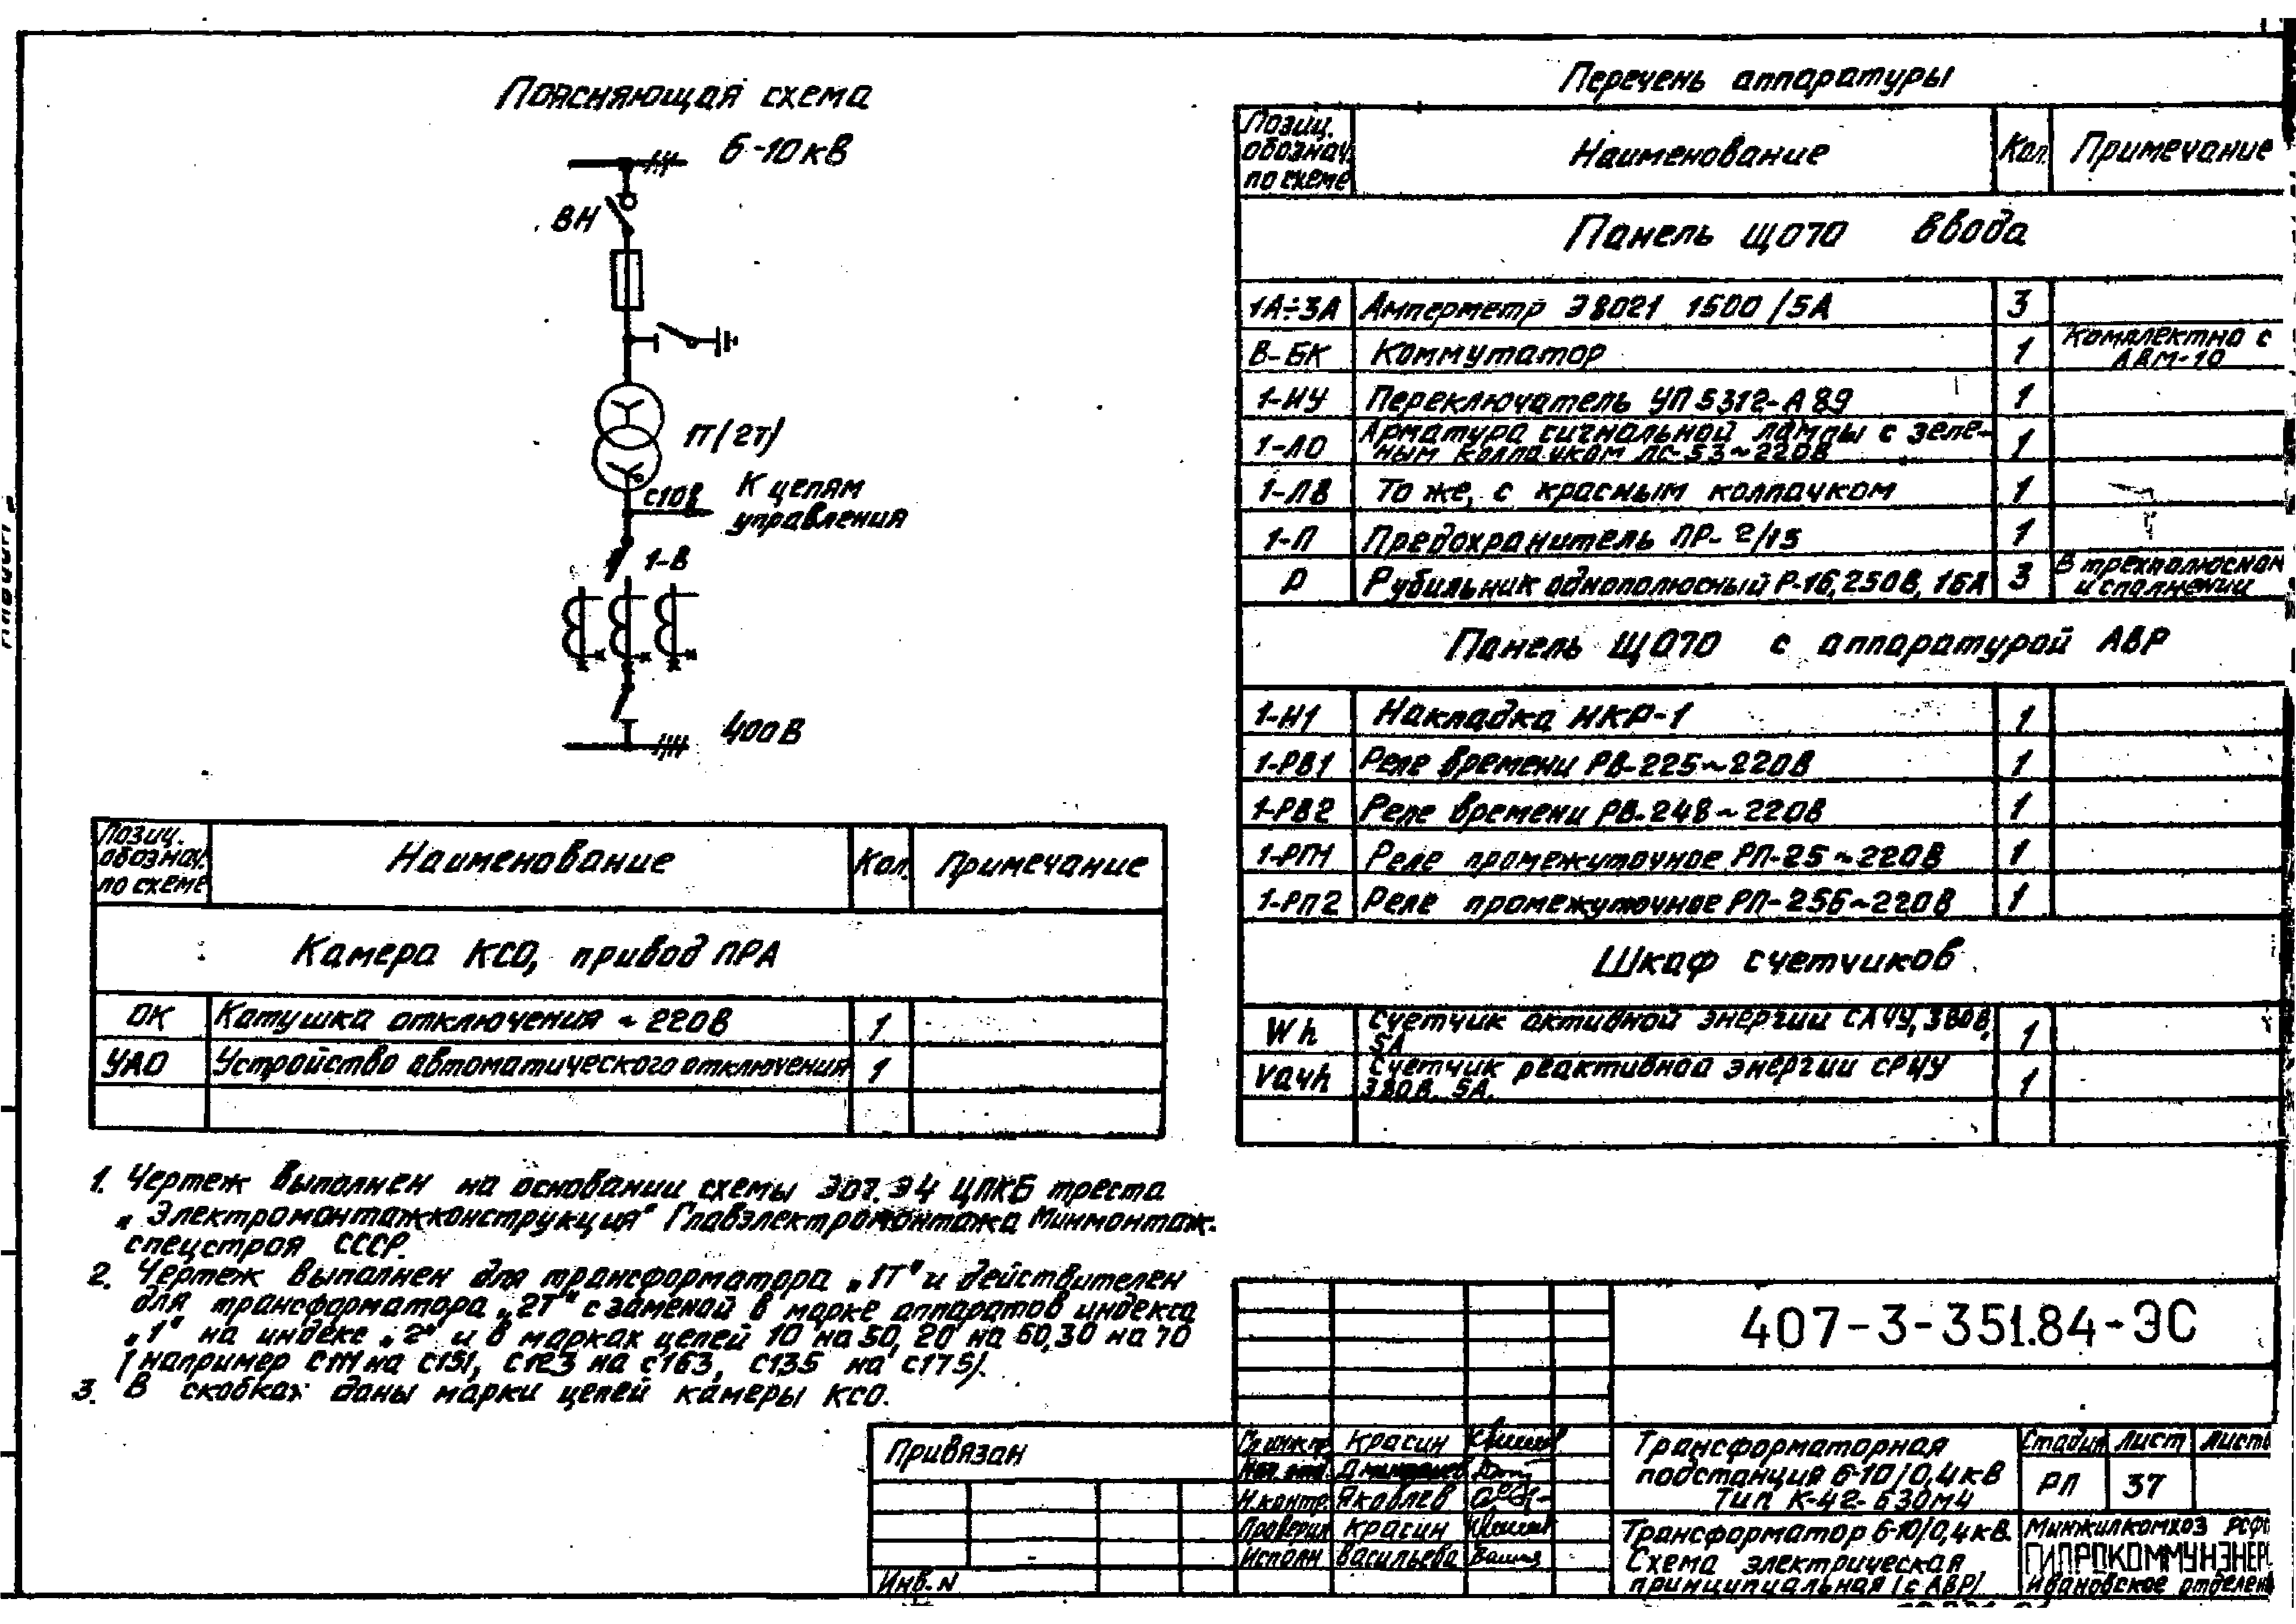 Поясняющая схема
6-10кВ
ВН
1Т(2Т)
С10В
К цепям
управления
1-В
400В
Позиц.
обознач.
по схеме
Наименование
Кол.
Примечание
Камера КСО, привод ПРА
ОК Катушка отключения ~ 220В 1
УАО Устройство автоматического отключения 1
1. Чертеж выполнен на основании схемы ЭО7.Э4 ЦПКБ треста
„Электромонтажконструкция" Главэлектромонтажа Минмонтаж-
спецстроя СССР.
2. Чертеж выполнен для трансформатора „1Т" и действителен
для трансформатора „2Т" с заменой в марке аппаратов индекса
„1" на индекс „2" и в марках цепей 10 на 50, 20 на 60, 30 на 70
(например С111 на С151, С123 на С163, С135 на С175).
3. В скобках даны марки цепей камеры КСО.
Перечень аппаратуры
Позиц.
обознач.
по схеме
Наименование
Кол.
Примечание
Панель ЩО70 ввода
1А÷3А Амперметр Э8021 1500/5А 3
В-БК Коммутатор 1 Комплектно с
АВМ-10
1-НУ Переключатель УП5312-А89 1
1-ЛО Арматура сигнальной лампы с зеле-
ным колпачком ЛС-53~220В 1
1-ЛВ То же, с красным колпачком 1
1-П Предохранитель ПР-2/15 1
Р Рубильник однополюсный Р-16,250В,16А 3 В трехполюсном
исполнении
Панель ЩО70 с аппаратурой АВР
1-Н1 Накладка НКР-1 1
1-РВ1 Реле времени РВ-225~220В 1
1-РВ2 Реле времени РВ-248~220В 1
1-РП1 Реле промежуточное РП-25~220В 1
1-РП2 Реле промежуточное РП-256~220В 1
Шкаф счетчиков
Wh Счетчик активной энергии СА4У, 380В,
5А 1
Varh Счетчик реактивной энергии СР4У
380В, 5А. 1
407-3-351.84-ЭС
Привязан
Инв.N
Гл.инж.пр. Красин
Нач. отд.
Н.контр. Яковлев
Проверил Красин
Исполн Васильева
Трансформаторная
подстанция 6-10/0,4кВ
Тип К-42-630М4
Стадия Лист Листо
РП 37
Трансформатор 6-10/0,4кВ.
Схема электрическая
принципиальная (с АВР)
Минжилкомхоз РСФ
ГИПРОКОММУНЭНЕР
Ивановское отделен